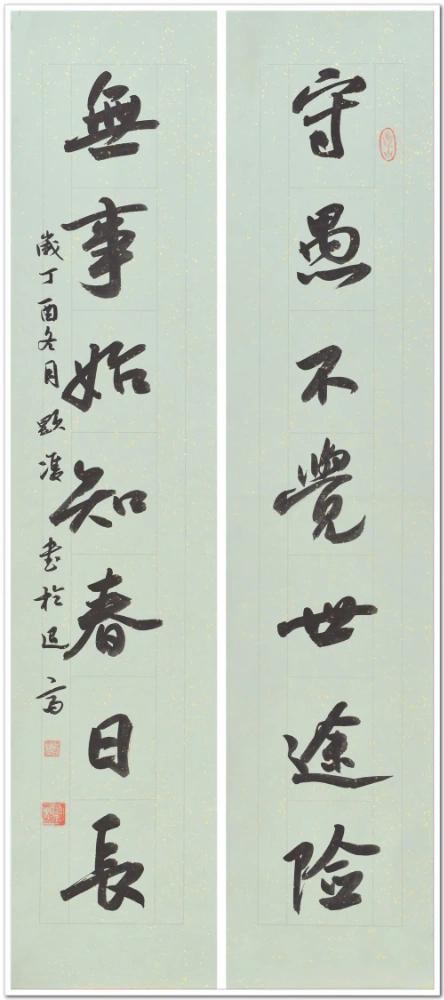 守愚不覺世途險
無事始知春日長
歲丁酉冬月
書於